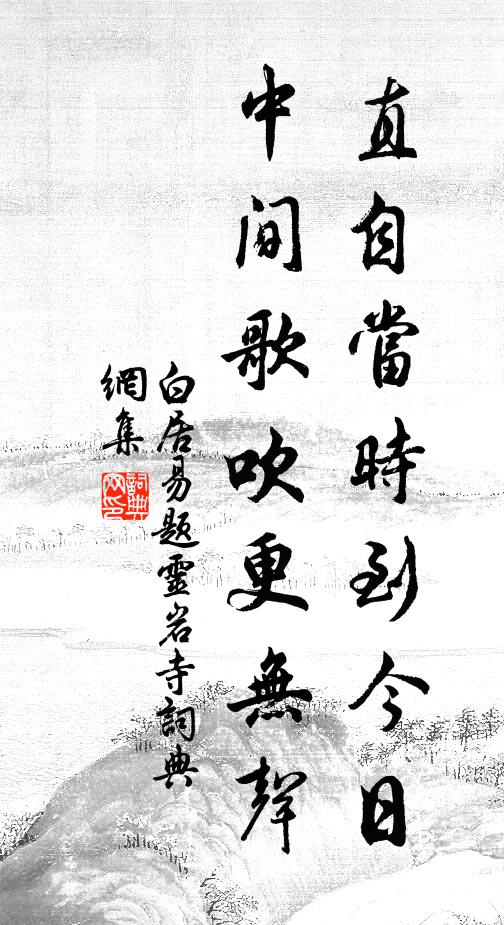 直自當時到今日
中間歌吹更無聲
白居易題靈岩寺詞典
網集
詞典
网印